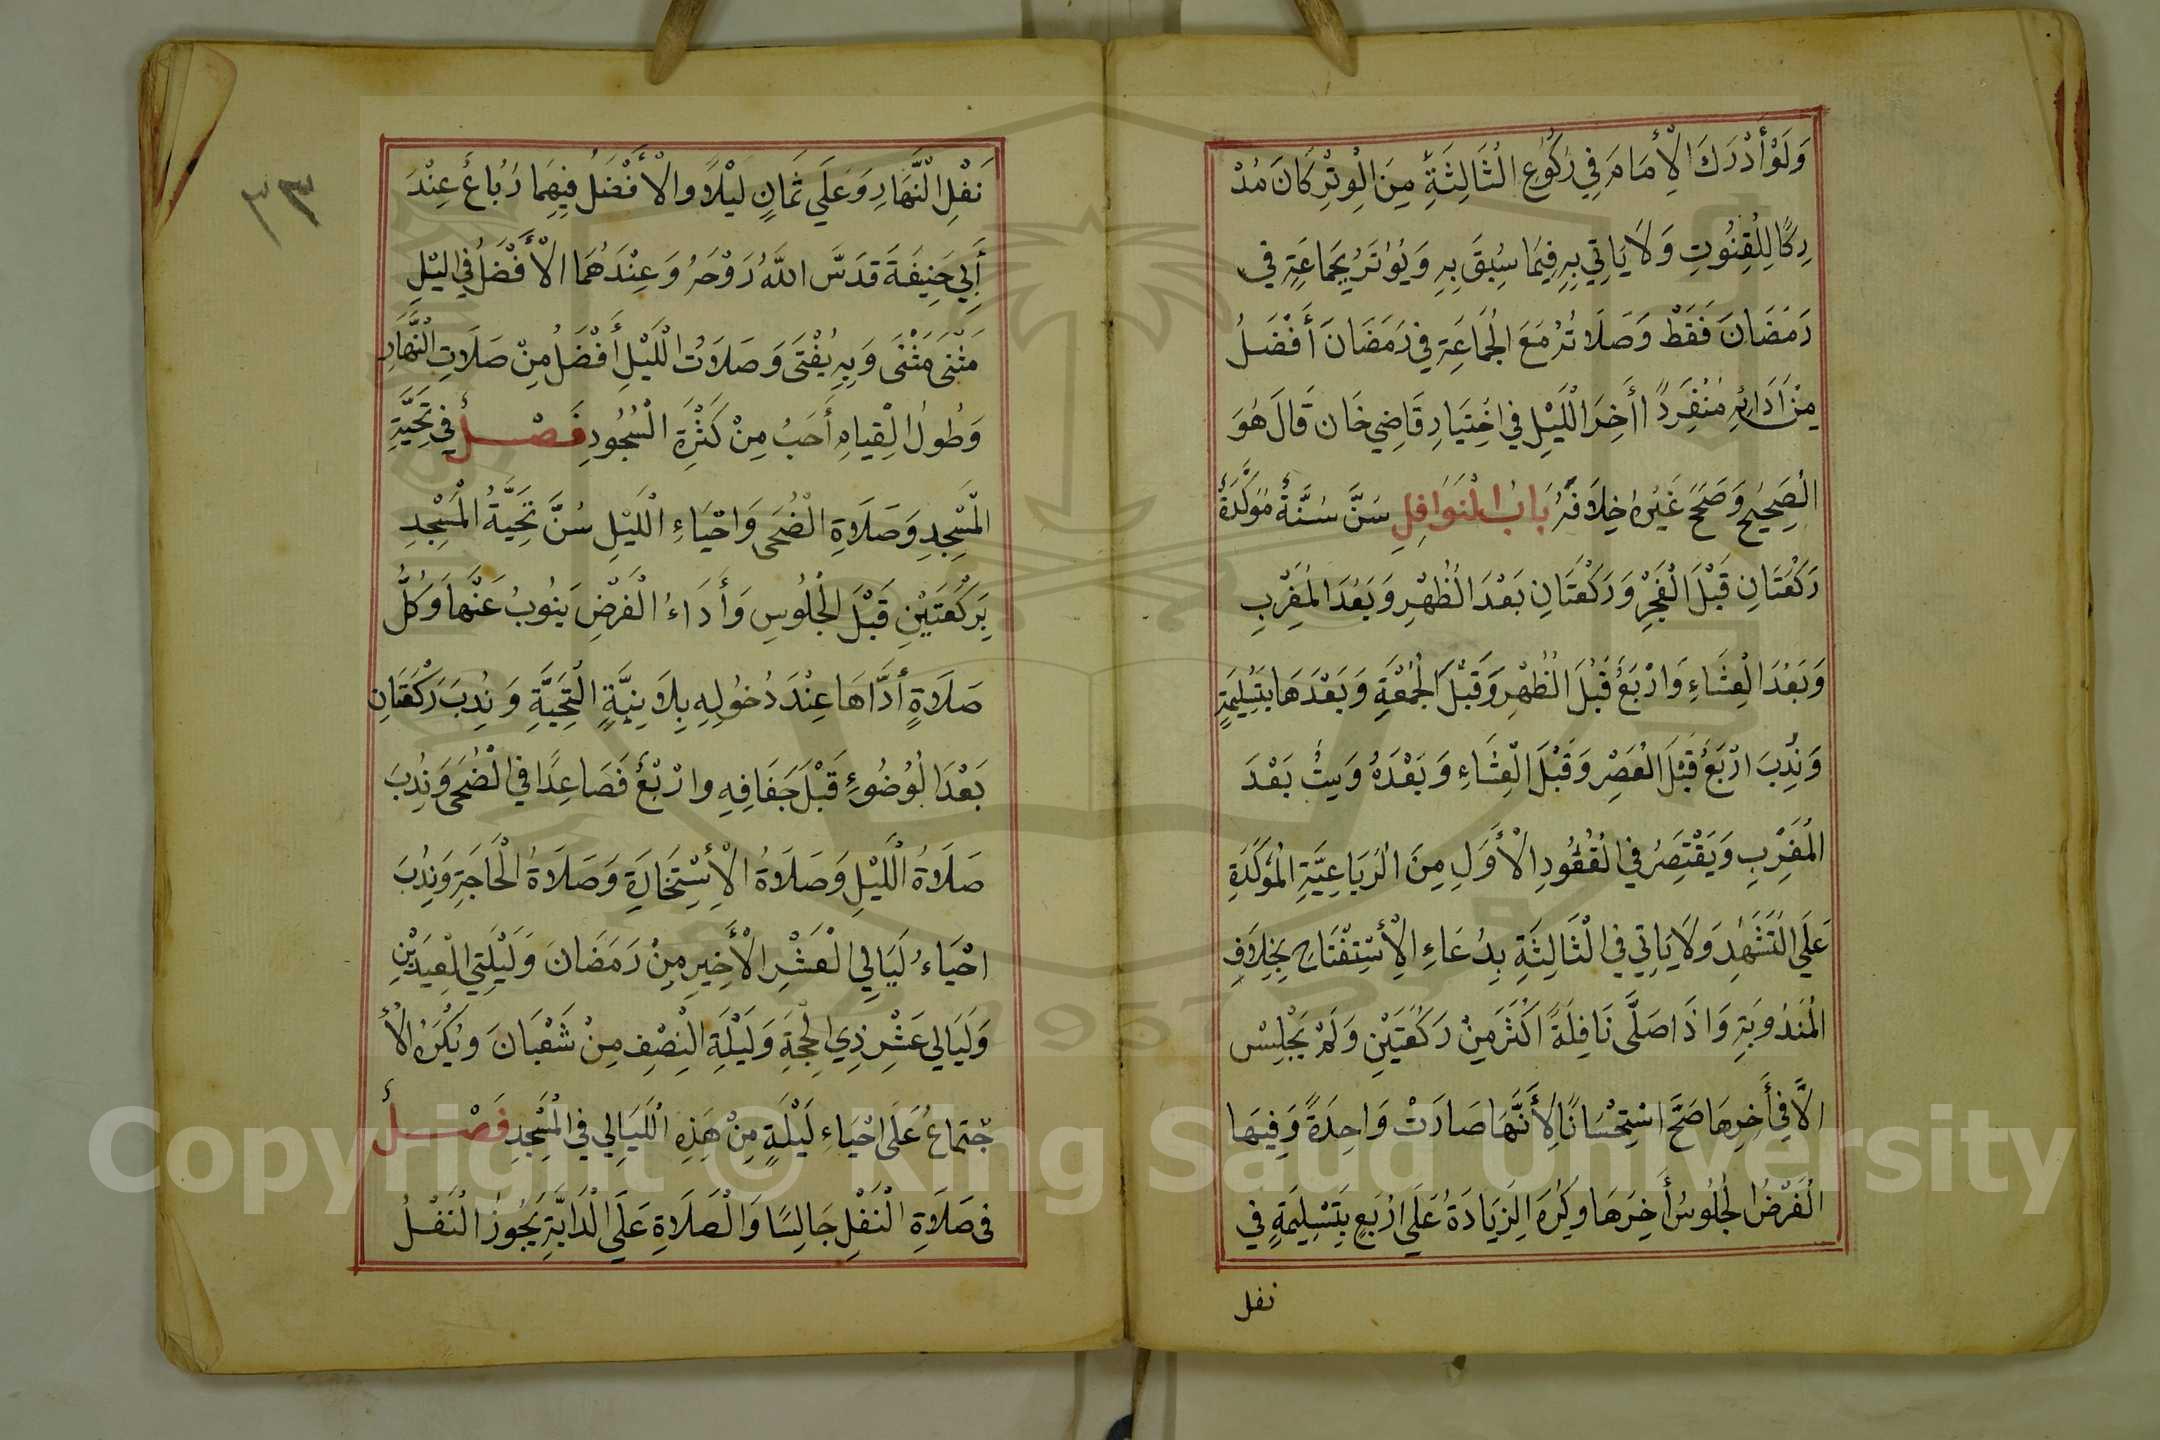 وَلَوْ أَدْرَكَ الْإِمَامَ فِي رُكُوعِ الثَّالِثَةِ مِنَ الْوِتْرِ كَانَ مُدْ
رِكًا لِلْقُنُوتِ وَلَا يَاْتِي بِهِ فِيمَا سُبِقَ بِهِ وَيُوْتَرُ بِجَمَاعَةٍ فِي
رَمَضَانَ فَقَطْ وَصَلَاتُهُ مَعَ الْجَمَاعَةِ فِي رَمَضَانَ أَفْضَلُ
مِنْ أَدَائِهِ مُنْفَرِدًا أَخِرَ اللَّيْلِ فِي اخْتِيَارِ قَاضِي خَان قَالَ هُوَ
الْصَحِيحُ وَصَحَّحَ غَيْرُهُ خِلَافَهُ بَابُ الْنَوَافِلِ سَنَّ سُنَّةٌ مُوَكَّدَةٌ
رَكْعَتَانِ قَبْلَ الْفَجْرِ وَرَكْعَتَانِ بَعْدَ الْظُهْرِ وَبَعْدَ الْمَغْرِبِ
وَبَعْدَ الْعِشَاءِ وَارْبَعٌ قَبْلَ الْظُهْرِ وَقَبْلَ الْجُمْعَةِ وَبَعْدَهَا بِتَسْلِيمَةٍ
وَنُدِبَ ارْبَعٌ قَبْلَ الْعَصْرِ وَقَبْلَ الْعِشَاءِ وَبَعْدَهُ وَسِتٌ بَعْدَ
الْمَغْرِبِ وَيَقْتَصِرُ فِي الْقُعُودِ الْأَوَلِ مِنَ الْرُبَاعِيَّةِ الْمُوَكَّدَةِ
عَلَي الْتَشَهُدِ وَلَا يَاتِي فِي الْثَالِثَةِ بِدُعَاءِ الْأِسْتِفْتَاحِ بِخِلَافِ
الْمَنْدُوبَةِ وَاذَا صَلَّى نَافِلَةً اكْثَرَ مِنْ رَكْعَتَيْنِ وَلَمْ يَجْلِسْ
الَّا فِي أَخِرِهَا صَحَّ اسْتِحْسَانًا لِأَنَّهَا صَارَتْ وَاحِدَةً وَفِيهَا
الْفَرْضُ الْجُلُوسُ أَخِرَهَا وَكُرِهَ الِزيَادَةُ عَلَي ارْبَعٍ بِتَسْلِيمَةٍ فِي
نفل
٣٣
نَفْلِ الْنَّهَارِ وَعَلَي ثَمَانٍ لَيْلًا والْأَفْضَلُ فِيهِمَا رُبَاعٌ عِنْدَ
أَبِي حَنِيفَةَ قَدَسَّ اللَّهُ رَوْحَهُ وَعِنْدَهُمَا الْأَفْضَلُ فِي اليْلِ
مَثْنَى مَثْنَى وَبِهِ يُفْتَى وَصَلَاتُ الْلَيْلِ أَفْضَلُ مِنْ صَلَاتِ الْنَّهَارِ
وَطُولُ الْقِيَامِ أَحَبُ مِنْ كَثْرَةِ السُجُودِ فَصْلٌ فِي تَحِيَّةِ
الْمَسْجِدِ وَصَلَاةِ الْضُحَى وَاحْيَاءِ الْلَيْلِ سُنَّ تَحِيَّةُ الْمَسْجِدِ
بِرَكْعَتَيْنِ قَبْلَ الْجُلُوسِ وَأَدَاءُ الْفَرْضِ يَنُوبُ عَنْهَا وَكُلُّ
صَلَاةٍ أَدَّاهَا عِنْدَ دُخُولِهِ بِلَا نِيَّةٍ الْتَحِيَّةِ وَنُدِبَ رَكْعَتَانِ
بَعْدَ الْوُضُوءِ قَبْلَ جَفَافِهِ وارْبْعٌ فَصَاعِدًا فِي الْضُحَى وَنُدِبَ
صَلَاةُ الْلَيْلِ وَصَلَاةُ الْأِسْتِخَارَةِ وَصَلَاةُ الْحَاجَةِ وَنُدِبَ
احْيَاءُ لَيَالِي الْعَشْرِ الْأَخِيرِ مِنْ رَمَضَانَ وَلَيْلَتِي الْعِيدَيْنِ
وَلَيَالِي عَشْرِ ذِي الْحِجَةِ وَلَيْلَةِ الْنِصْفِ مِنْ شَعْبَانَ وَيُكْرَهُ الْأ
جْتِمَاعُ عَلَى احْيَاءِ لَيْلَةٍ مِنْ هَذِهِ الْلَيَالِي فِي الْمَسْجِدِ فَصْلٌ
فى صَلَاةِ الْنَفْلِ جَالِسًا وَالْصَلَاةِ عَلَى الْدَابَّةِ يَجُوزُ الْنَفْلُ
Copyright © King Saud University
1957